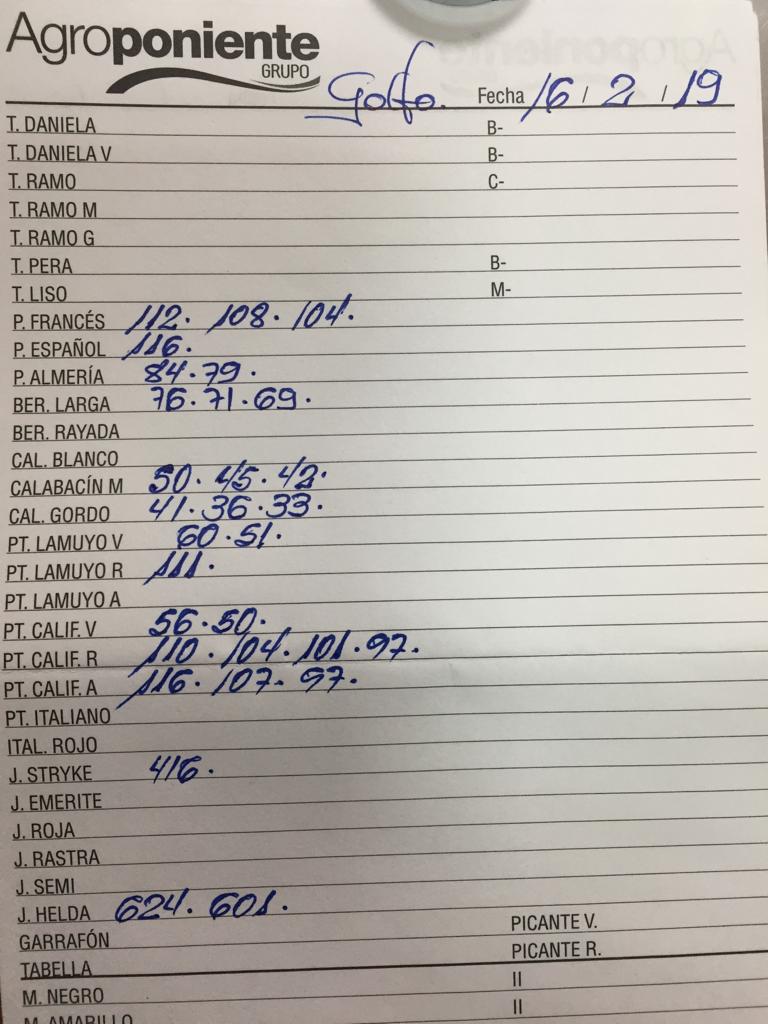 Agroponiente
GRUPO
Golfo. Fecha 16 / 2 / 19
T. DANIELA B-
T. DANIELA V B-
T. RAMO C-
T. RAMO M
T. RAMO G
T. PERA B-
T. LISO M-
P. FRANCÉS 112. 108. 104.
P. ESPAÑOL 116.
P. ALMERÍA 84.79.
BER. LARGA 76.71.69.
BER. RAYADA
CAL. BLANCO
CALABACÍN M 50. 45. 42.
CAL. GORDO 41.36.33.
PT. LAMUYO V 60.51.
PT. LAMUYO R 111.
PT. LAMUYO A
PT. CALIF. V 56.50.
PT. CALIF. R 110. 104. 101. 97.
PT. CALIF. A 116. 107. 97.
PT. ITALIANO
ITAL. ROJO
J. STRYKE 416.
J. EMERITE
J. ROJA
J. RASTRA
J. SEMI
J. HELDA 624. 601.
GARRAFÓN PICANTE V.
TABELLA PICANTE R.
M. NEGRO II
M. AMARILLO II